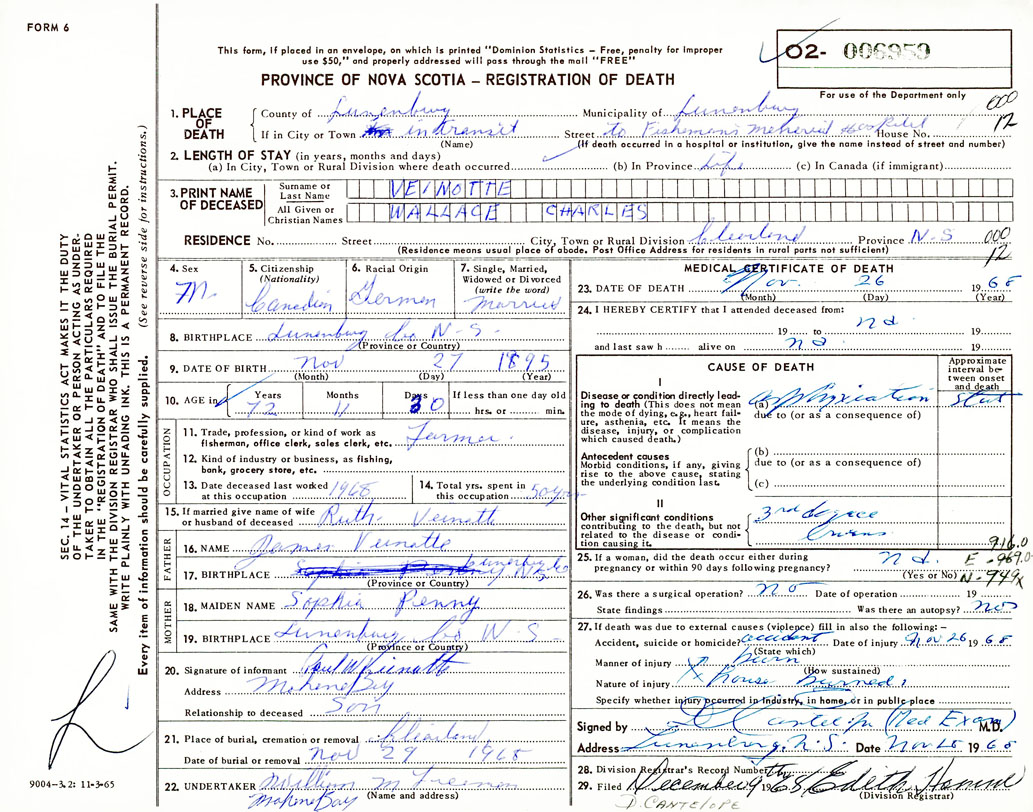 FORM 6
This form, if placed in an envelope, on which is printed "Dominion Statistics – Free, penalty for improper
use $50," and properly addressed will pass through the mail "FREE"
PROVINCE OF NOVA SCOTIA – REGISTRATION OF DEATH
O2- 006959
For use of the Department only
000
12
1. PLACE OF DEATH
County of Lunenburg Municipality of Lunenburg
If in City or Town in transit Street to Fishermen's Memorial Hospital House No.
(Name) (If death occurred in a hospital or institution, give the name instead of street and number)
2. LENGTH OF STAY (in years, months and days)
(a) In City, Town or Rural Division where death occurred (b) In Province Life (c) In Canada (if immigrant)
3. PRINT NAME OF DECEASED
Surname or Last Name VEINOTTE
All Given or Christian Names WALLACE CHARLES
RESIDENCE No. Street City, Town or Rural Division Clearland Province N.S
(Residence means usual place of abode. Post Office Address for residents in rural parts not sufficient)
000
12
4. Sex M.
5. Citizenship (Nationality) Canadian
6. Racial Origin German
7. Single, Married, Widowed or Divorced (write the word) Married
8. BIRTHPLACE Lunenburg Co N-S-
(Province or Country)
9. DATE OF BIRTH Nov 27 1895
(Month) (Day) (Year)
10. AGE in Years 72 Months 11 Days 30 If less than one day old hrs. or min.
OCCUPATION
11. Trade, profession, or kind of work as fisherman, office clerk, sales clerk, etc. Farmer
12. Kind of industry or business, as fishing, bank, grocery store, etc.
13. Date deceased last worked at this occupation 1968
14. Total yrs. spent in this occupation 50 years
15. If married give name of wife or husband of deceased Ruth Veinotte
FATHER
16. NAME James Veinotte
17. BIRTHPLACE Lunenburg Co N.S.
(Province or Country)
MOTHER
18. MAIDEN NAME Sophia Penny
19. BIRTHPLACE Lunenburg Co N-S-
(Province or Country)
20. Signature of informant Paul W Veinotte
Address Mahone Bay
Relationship to deceased Son
21. Place of burial, cremation or removal Clearland
Date of burial or removal Nov 29 1968
22. UNDERTAKER William M
Mahone Bay (Name and address)
MEDICAL CERTIFICATE OF DEATH
23. DATE OF DEATH Nov. 26 1968
(Month) (Day) (Year)
24. I HEREBY CERTIFY that I attended deceased from:
19 to n a 19
and last saw h alive on n a 19
CAUSE OF DEATH
Approximate interval between onset and death
I
Disease or condition directly leading to death (This does not mean the mode of dying, e.g., heart failure, asthenia, etc. It means the disease, injury, or complication which caused death.)
(a) asphyxiation Stat
due to (or as a consequence of)
Antecedent causes
Morbid conditions, if any, giving rise to the above cause, stating the underlying condition last.
(b)
due to (or as a consequence of)
(c)
II
Other significant conditions contributing to the death, but not related to the disease or condition causing it.
3rd degree
burns
916.0
E -969.0
N-949x
25. If a woman, did the death occur either during pregnancy or within 90 days following pregnancy? n a.
(Yes or No)
26. Was there a surgical operation? no Date of operation 19
State findings Was there an autopsy? no
27. If death was due to external causes (violence) fill in also the following:–
Accident, suicide or homicide? accident Date of injury Nov 26 1968
(State which)
Manner of injury burn
(How sustained)
Nature of injury house burned
Specify whether injury occurred in industry, in home, or in public place
Signed by D Cantelope (Med Exam) M.D.
Address Lunenburg, N.S. Date Nov 1968
28. Division Registrar's Record Number
29. Filed December 9 1968 Edith
(Division Registrar)
D. CANTELOPE
SEC. 14 – VITAL STATISTICS ACT MAKES IT THE DUTY
OF THE UNDERTAKER OR PERSON ACTING AS UNDER-
TAKER TO OBTAIN ALL THE PARTICULARS REQUIRED
IN THE "REGISTRATION OF DEATH" AND TO FILE THE
SAME WITH THE DIVISION REGISTRAR WHO SHALL ISSUE THE BURIAL PERMIT.
WRITE PLAINLY WITH UNFADING INK. THIS IS A PERMANENT RECORD.
Every item of information should be carefully supplied. (See reverse side for instructions.)
9004–3.2: 11-3-65